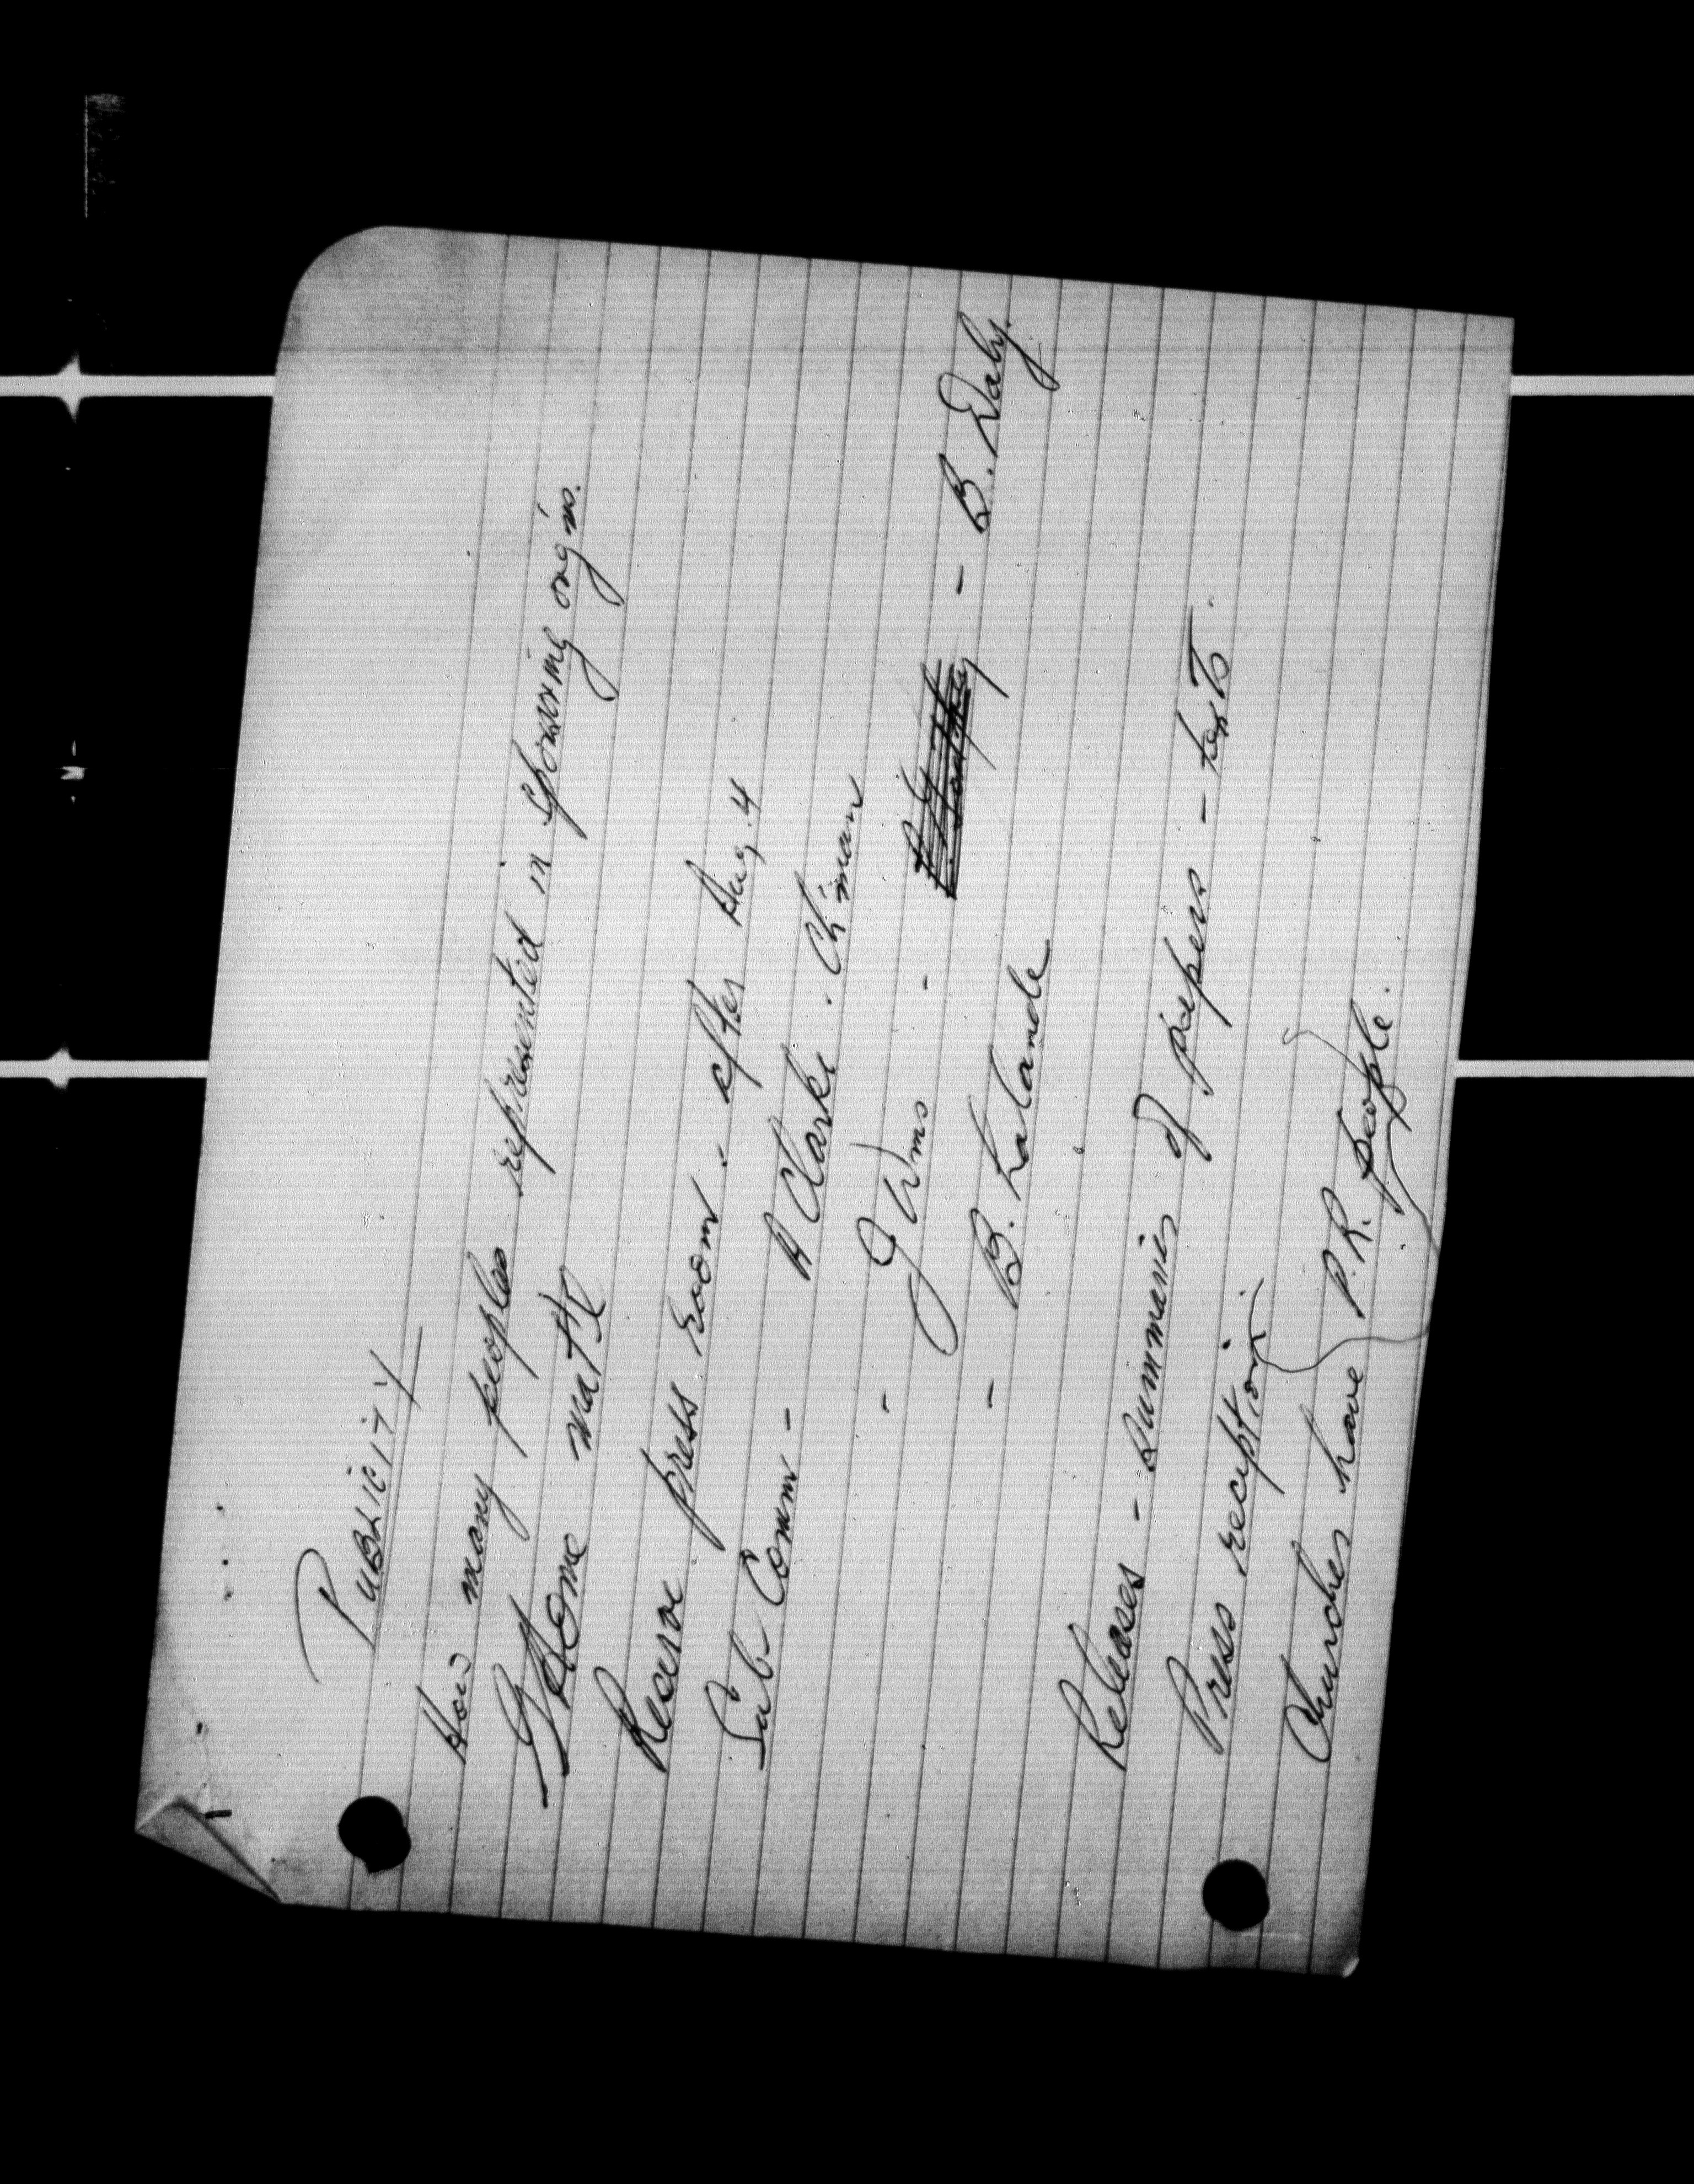 PUBLICITY
How many peoples represented in sponsoring org'ns.
Home
Reserve press room - after Aug. 4
Sub Comm - A Clarke. Ch'man
- J Wms - - B. Daly.
- B. Lalande
Releases - summaries of papers - texts.
Press reception
Churches have P.R. people.